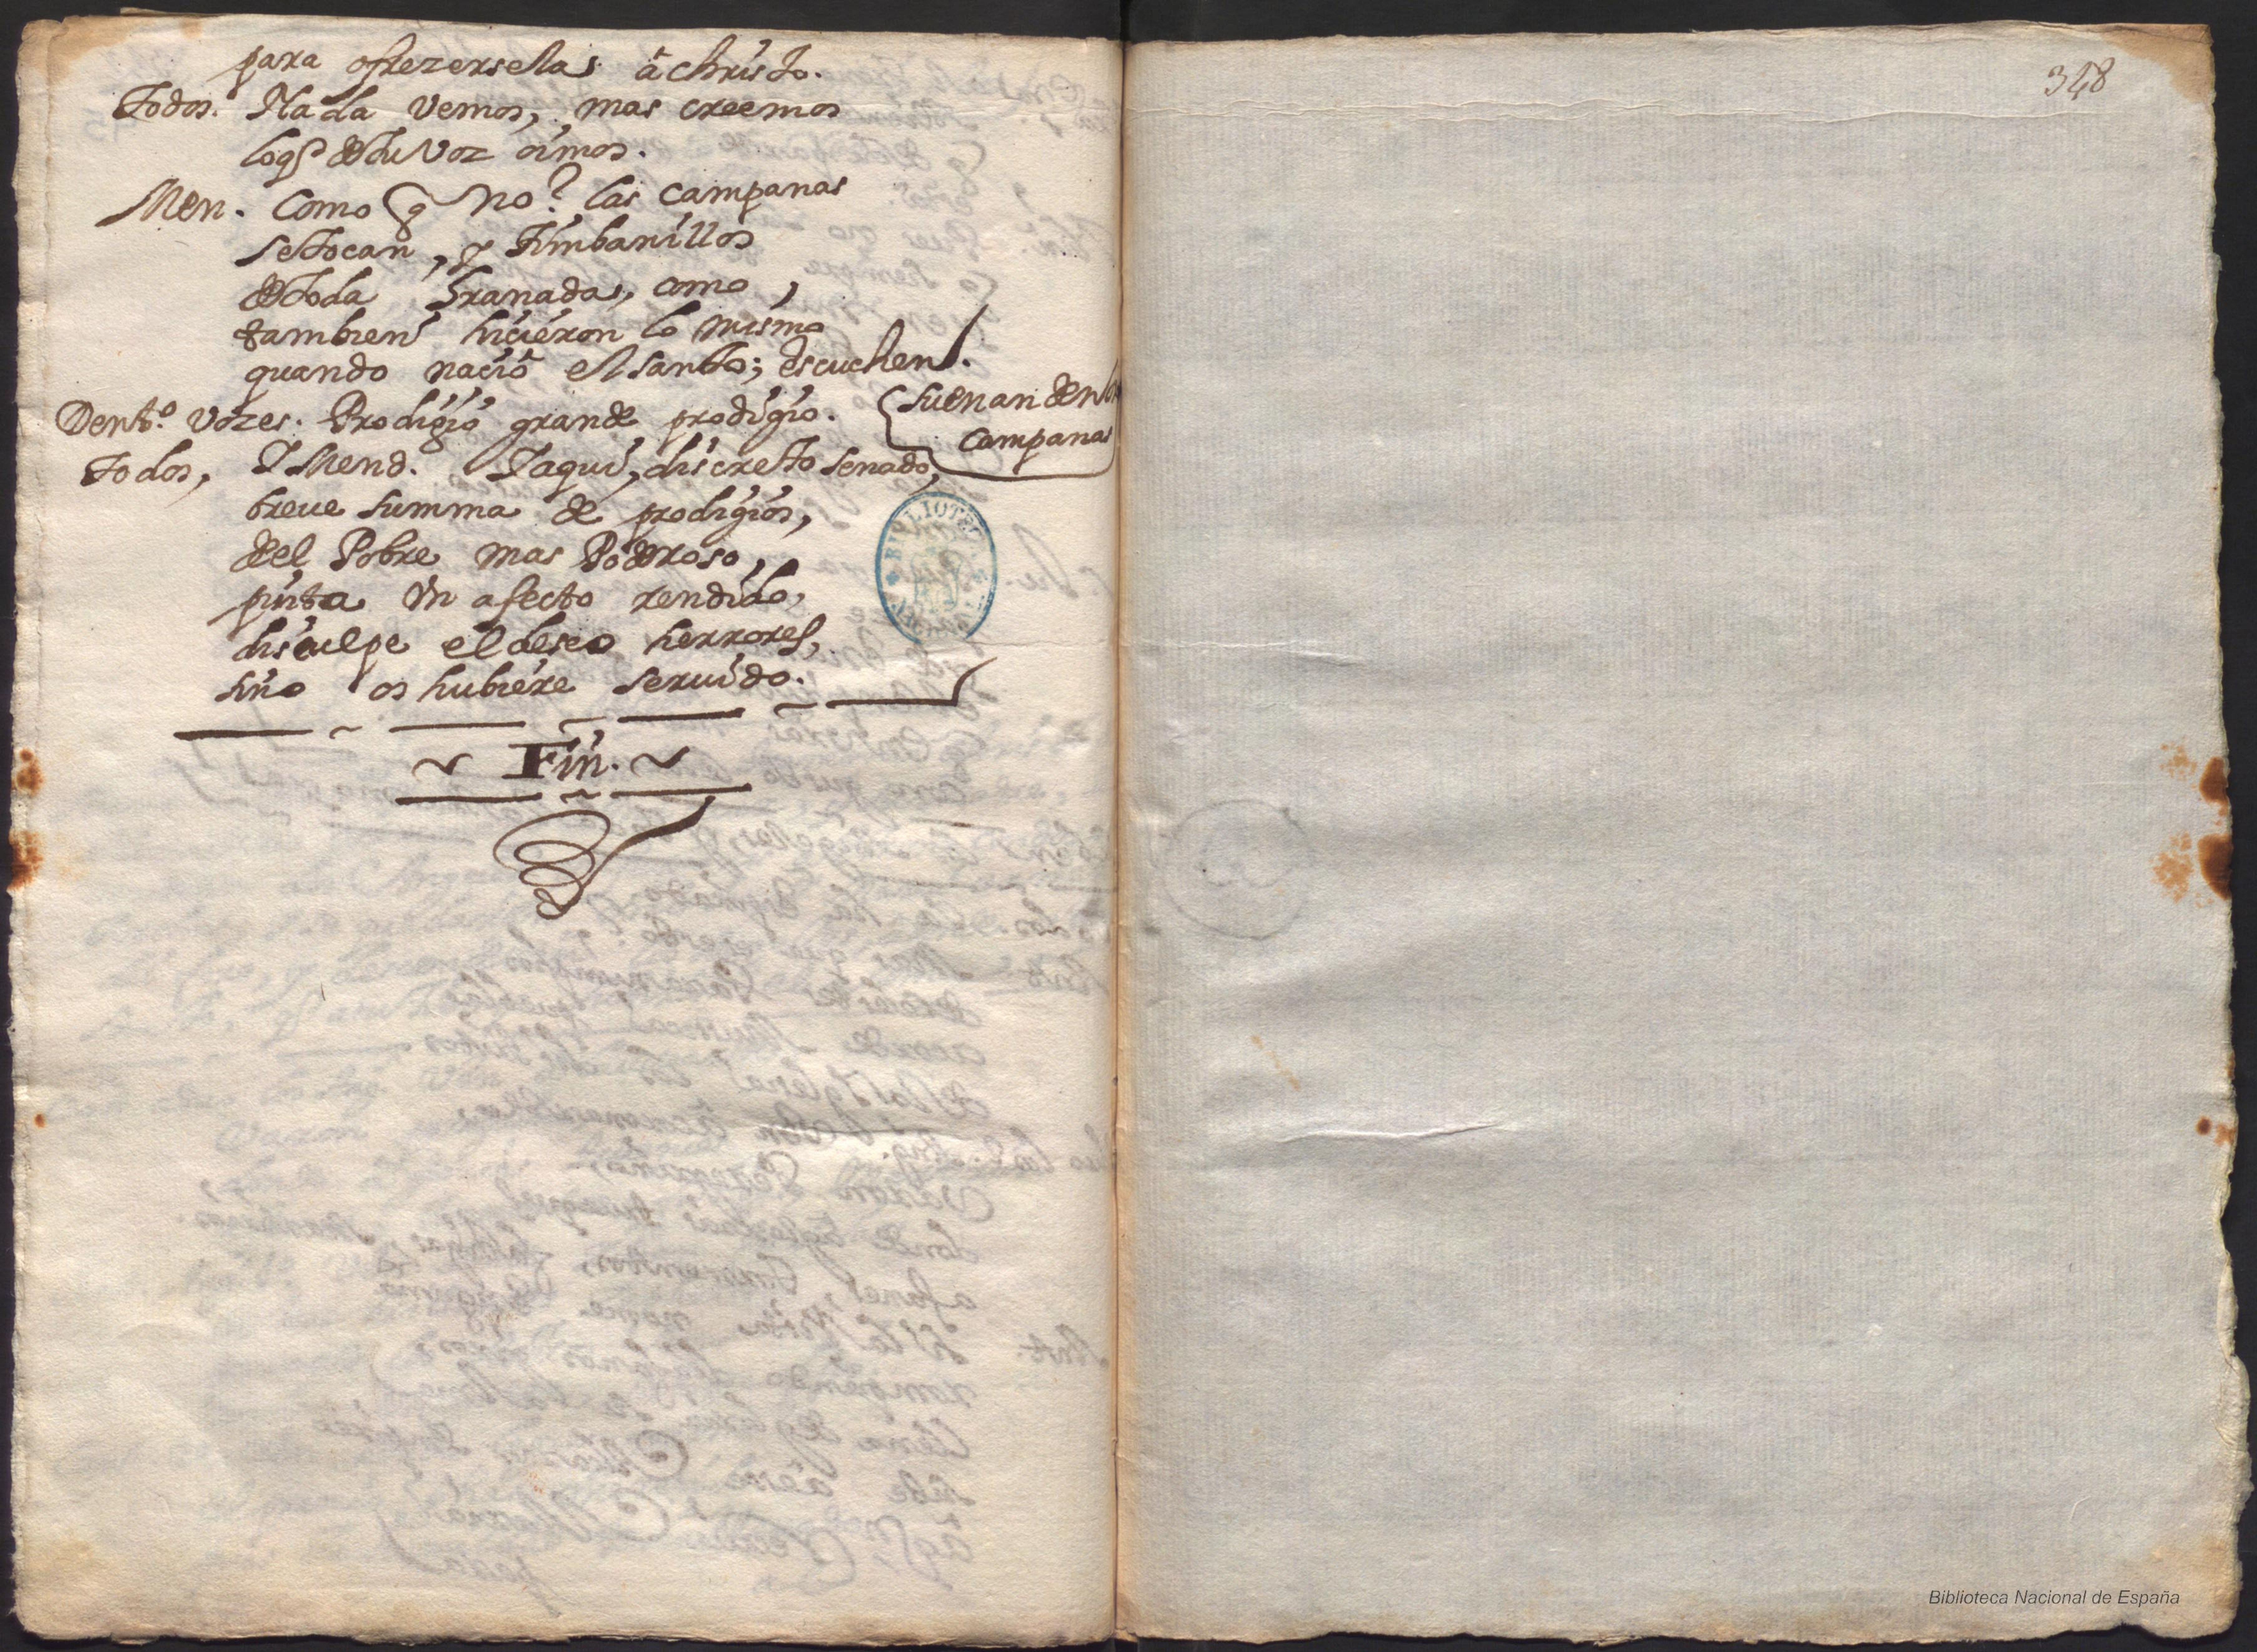 para ofrezerselas â christo.
Todos. Nada vemos, mas creemos
loq̃ de tu voz oimos.
Men. Como q̃ no? las campanas
se tocan, y timbanillos
de toda Granada, como
tambien hicieron lo mismo
quando naciò el santo; escuchen.
Dentº. Vozes. Prodigio grande prodigio.
(suenan dentro
campanas
Todos, Y Mend. Y aqui, discreto senado,
breue summa de prodigios,
del Pobre mas Poderoso,
pinta Vn afecto rendido,
disculpe el deseo herrores,
sino os hubiere seruido.
Fin.
BIBLIOTECA
348
Biblioteca Nacional de España